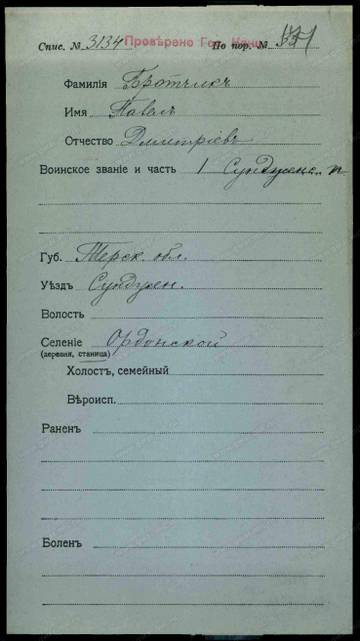 Спис. № 3134 Провѣрено По пор. №
Фамилія Бротчикъ
Имя Павелъ
Отчество Дмитріевъ
Воинское званіе и часть 1 Сундженс. п
Губ. Терск. обл.
Уѣздъ Сунджен.
Волость
Селеніе Ордонской
(деревня, станица)
Холостъ, семейный
Вѣроисп.
Раненъ
Боленъ